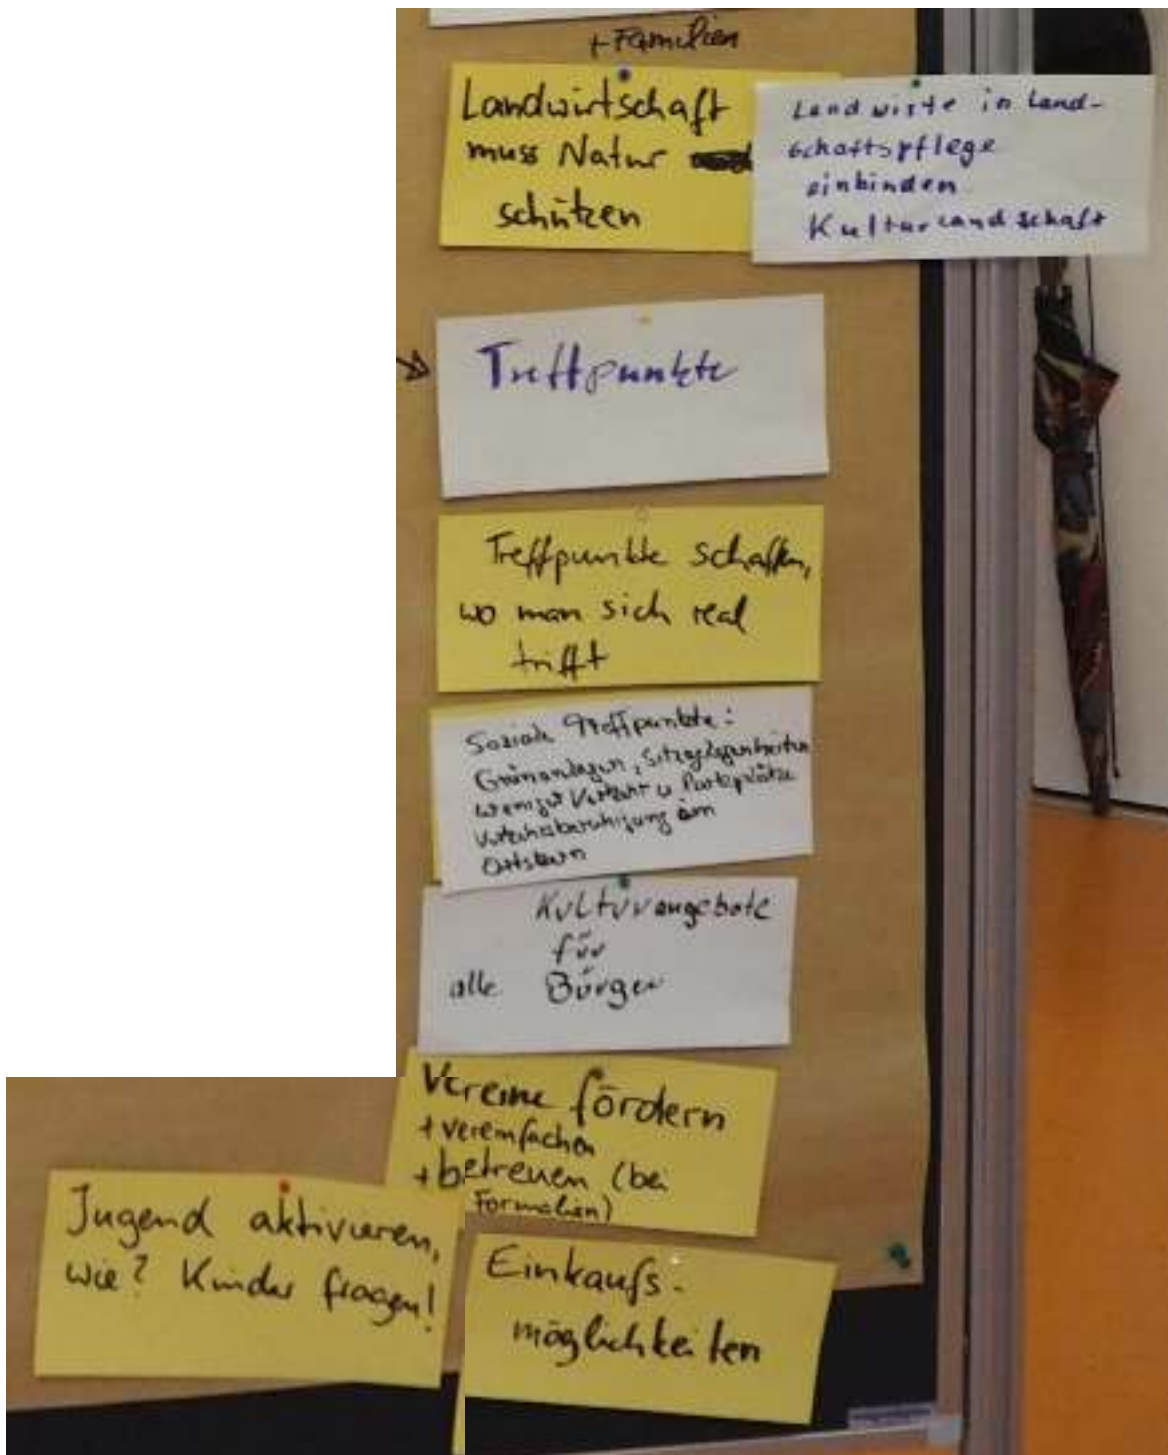 + Familien
Landwirtschaft
muss Natur
schützen
Landwirte in Land-
schaftspflege
einbinden
Kulturlandschaft
Treffpunkte
Treffpunkte schaffen,
wo man sich real
trifft
Soziale Treffpunkte:
Grünanlagen, Sitzgelegenheiten
weniger Verkehr u Parkplätze
Verkehrsberuhigung im
Ortskern
Kulturangebote
für
alle Bürger
Vereine fördern
+ vereinfachen
+ betreuen (bei
Formalien)
Jugend aktivieren,
wie? Kinder fragen!
Einkaufs-
möglichkeiten